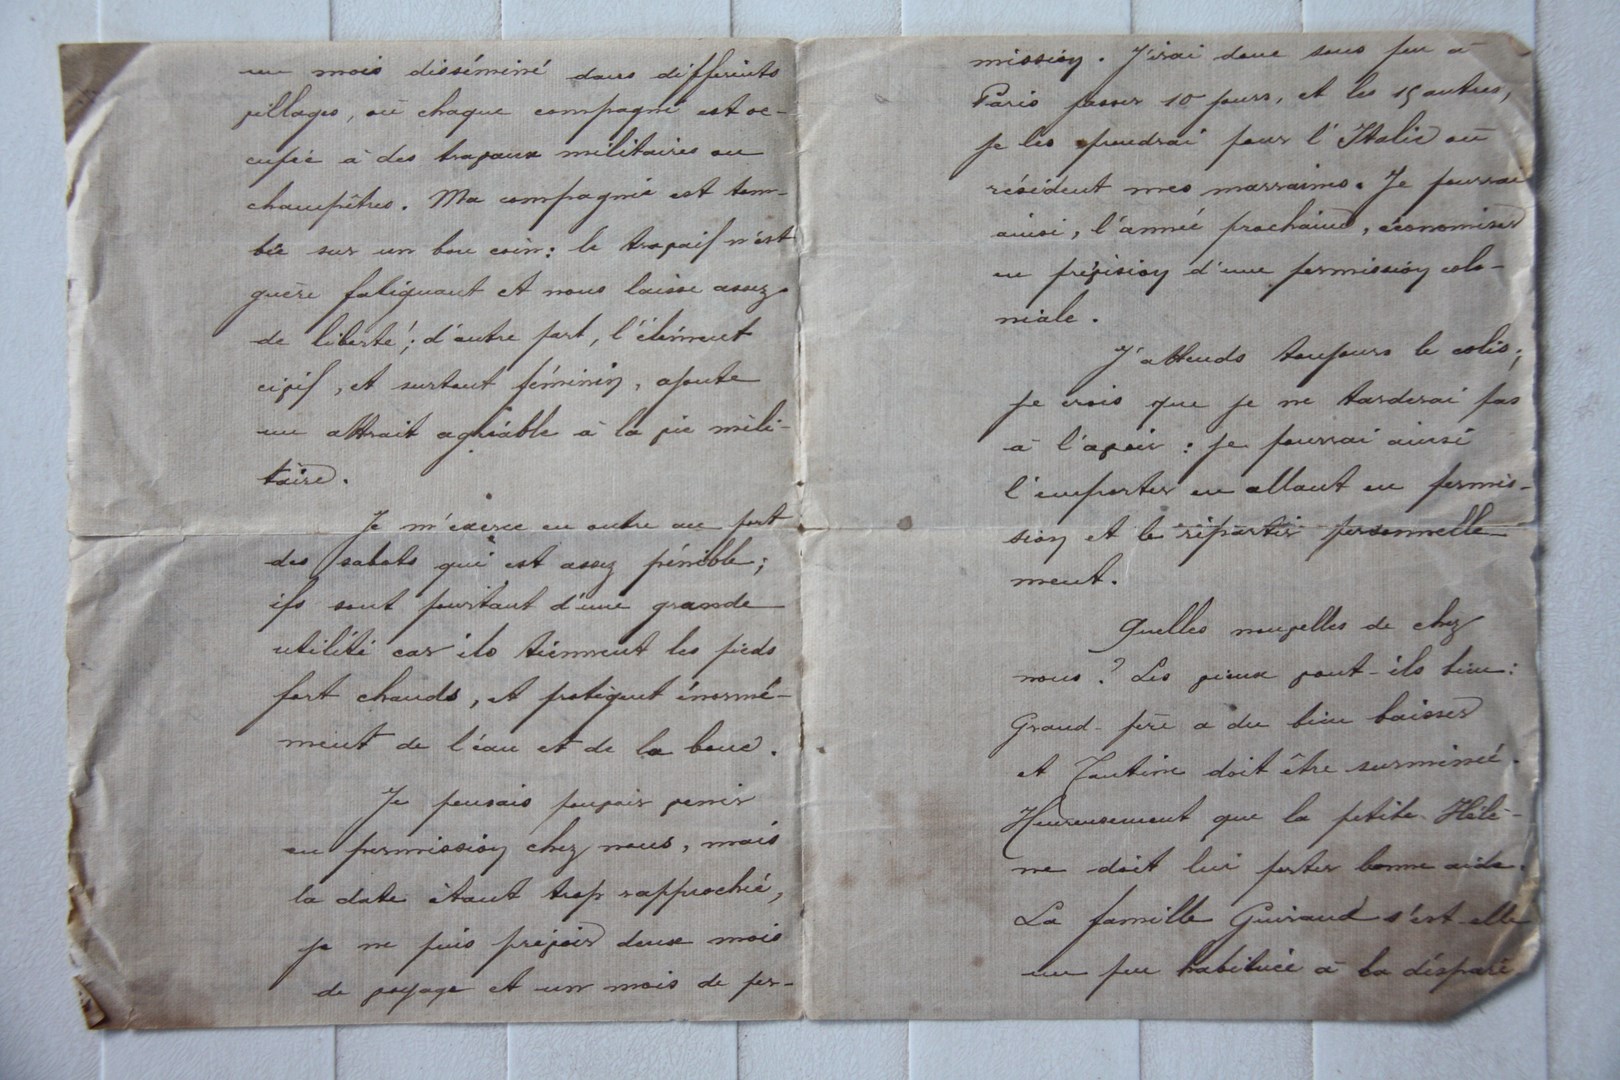 un mois disséminé dans différents
villages, où chaque compagnie est oc-
cupée à des travaux militaires ou
champêtres. Ma compagnie est tom-
bée sur un bon coin : le travail n'est
guère fatiguant et nous laisse assez
de liberté ; d'autre part, l'élément
civil, et surtout féminin, ajoute
un attrait agréable à la vie mili-
taire.
Je m'exerce en outre au port
des sabots qui est assez pénible ;
ils sont pourtant d'une grande
utilité car ils tiennent les pieds
fort chauds, et protègent énormé-
ment de l'eau et de la boue.
Je pensais pouvoir venir
en permission chez nous, mais
la date étant trop rapprochée,
je ne puis prévoir deux mois
de voyage et un mois de per-
mission. J'irai donc sous peu à
Paris passer 10 jours, et les 15 autres,
je les prendrai pour l'Italie où
résident mes marraines. Je pourrai
ainsi, l'année prochaine, économiser
en prévision d'une permission colo-
niale.
J'attends toujours le colis ;
je crois que je ne tarderai pas
à l'avoir : je pourrai ainsi
l'emporter en allant en permis-
sion et le répartir personnelle
ment.
Quelles nouvelles de chez
nous ? Les vieux vont-ils bien :
Grand-père a du bien baisser
et Tantine doit être surminée.
Heureusement que la petite Hélè-
ne doit lui porter bonne aide.
La famille Guiraud s'est-elle
un peu habituée à la dispari